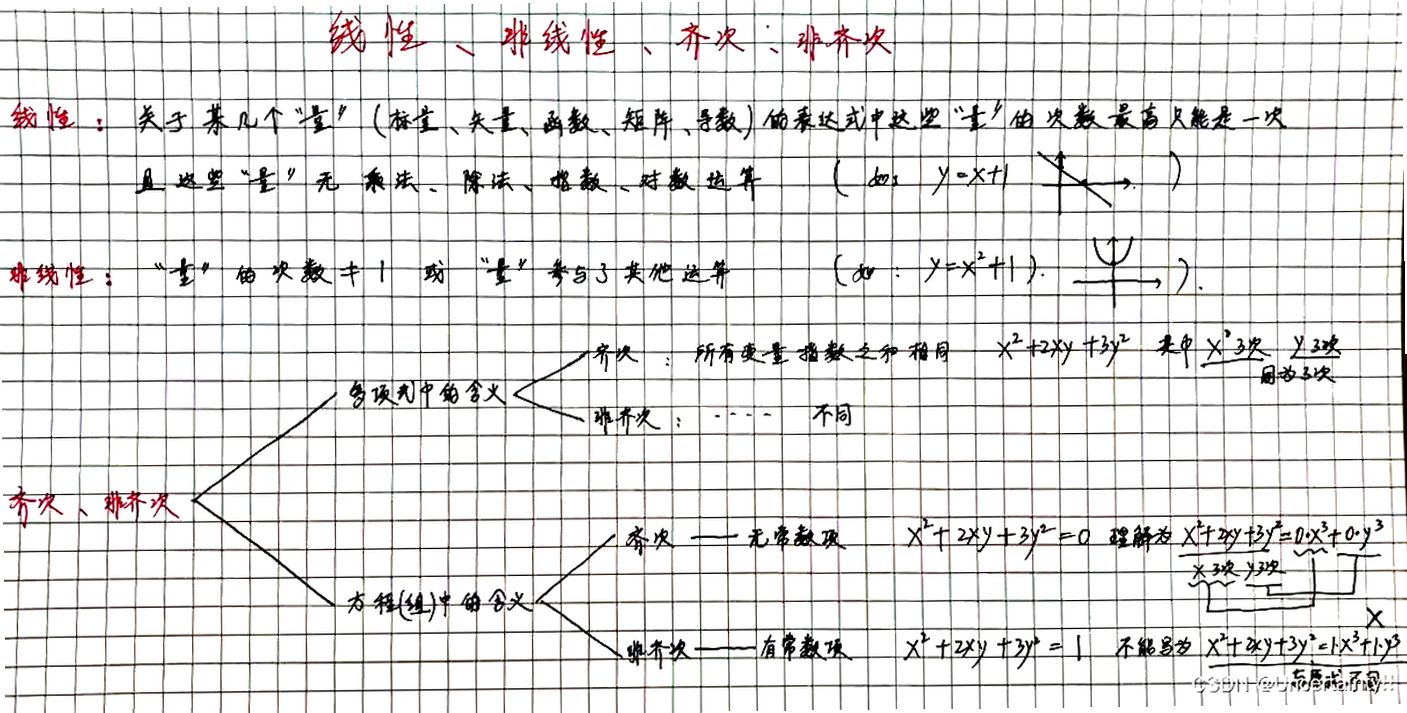 线性、非线性、齐次、非齐次
线性: 关于某几个“量”(标量、矢量、函数、矩阵、导数)的表达式中这些“量”的次数最高只能是一次
且这些“量”无乘法、除法、指数、对数运算 (如: y=x+1 )
非线性: “量”的次数≠1 或 “量”参与了其他运算 (如: y=x²+1).
齐次: 所有变量指数之和相同 x²+2xy+3y² 其中 x 3次 y 3次
同为3次
多项式中的含义
非齐次: ---- 不同
齐次、非齐次
齐次 —— 无常数项 x²+2xy+3y²=0 理解为 x²+2xy+3y²=0·x³+0·y³
x 3次 y 3次
方程(组)中的含义
X
非齐次 —— 有常数项 x²+2xy+3y²=1 不能写为 x²+2xy+3y²=1·x³+1·y³
与原式不同
CSDN @Uncertainty!!